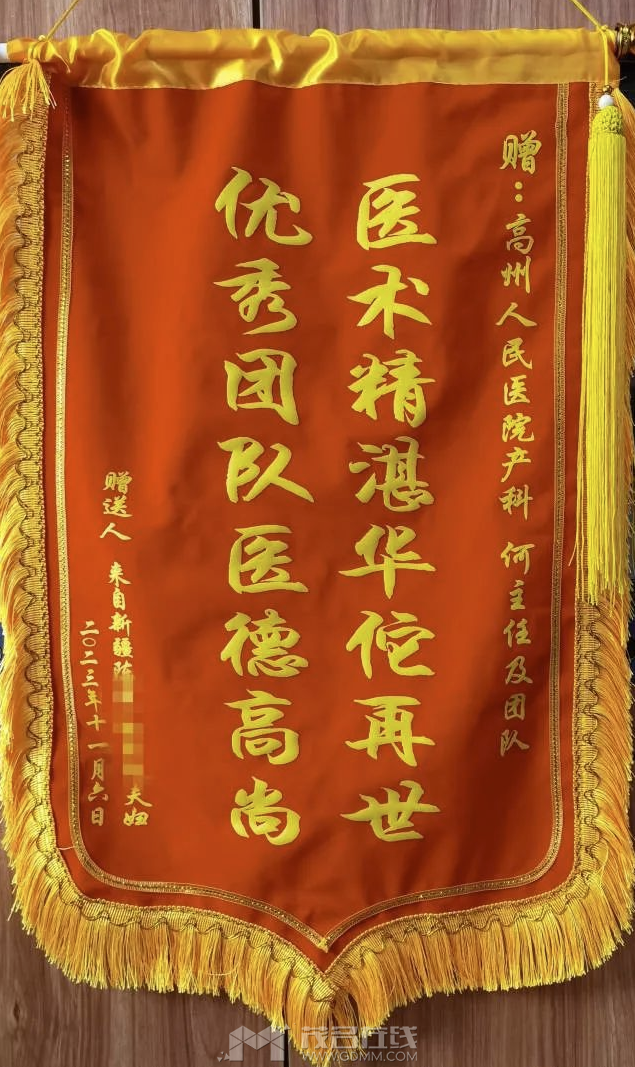 赠：高州人民医院产科 何主任及团队
医术精湛华佗再世
优秀团队医德高尚
赠送人 来自新疆陈 夫妇
二〇二三年十一月六日
茂名在线
WWW.GDMM.COM